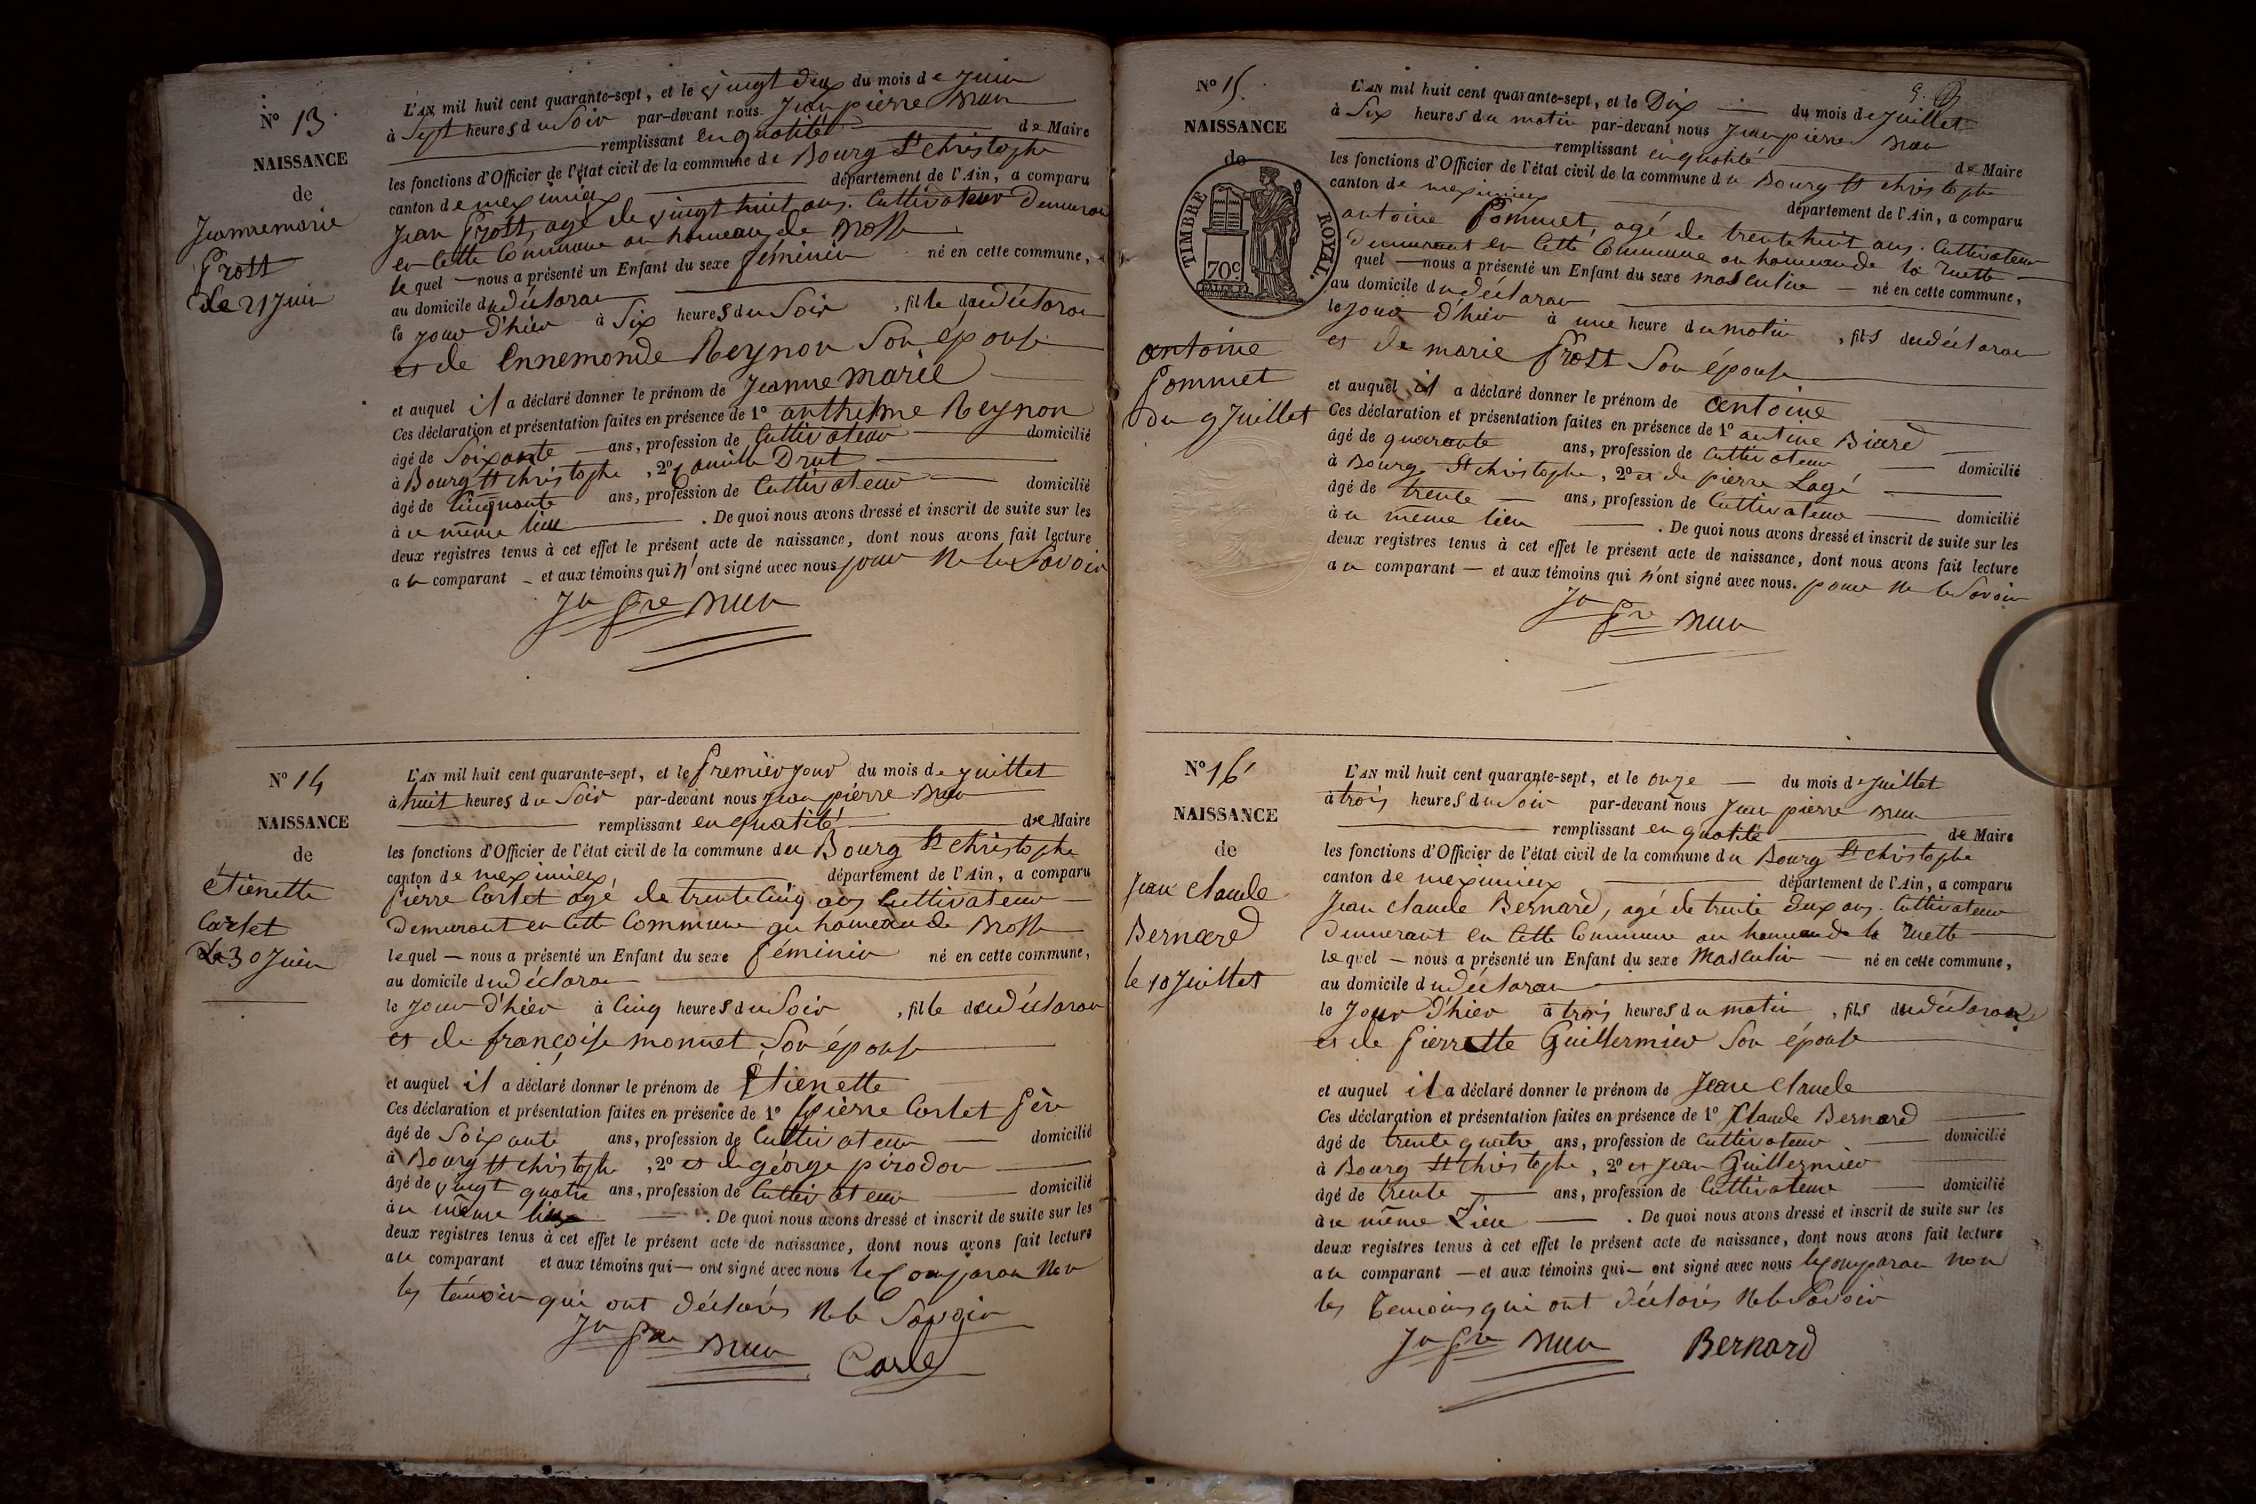 N° 13
NAISSANCE
de
Jeanne marie
Prost
Le 21 Juin
L'AN mil huit cent quarante-sept, et le vingt deux du mois de Juin
à Sept heures du Soir par-devant nous Jean pierre Brun
remplissant en qualité de Maire
les fonctions d'Officier de l'état civil de la commune de Bourg St christophe
canton de meximieux département de l'Ain, a comparu
Jean Prost, agé de vingt huit ans. Cultivateur Demuran
en Cette Commune au hameau de
le quel nous a présenté un Enfant du sexe féminin né en cette commune,
au domicile du déclaran
le jour d'hier à Six heures du Soir, fille du déclaran
et de Ennemonde Reynon Son épouse
et auquel il a déclaré donner le prénom de Jeanne marie
Ces déclaration et présentation faites en présence de 1° anthelme Reynon
âgé de Soixante ans, profession de Cultivateur domicilié
à Bourg St christophe, 2° Camille Drut
âgé de Cinquante ans, profession de Cultivateur domicilié
à ce même lieu. De quoi nous avons dressé et inscrit de suite sur les
deux registres tenus à cet effet le présent acte de naissance, dont nous avons fait lecture
au comparant et aux témoins qui n'ont signé avec nous pour ne le Savoir
Jn Pre Brun
N° 14
NAISSANCE
de
étienette
Carlet
Le 30 Juin
L'AN mil huit cent quarante-sept, et le premier jour du mois de juillet
à huit heures du Soir par-devant nous Jean pierre Brun
remplissant en qualité de Maire
les fonctions d'Officier de l'état civil de la commune du Bourg St christophe
canton de meximieux, département de l'Ain, a comparu
pierre Carlet agé de trente Cinq ans Cultivateur
Demurant en Cette Commune au hameau de
lequel nous a présenté un Enfant du sexe féminin né en cette commune,
au domicile du déclaran
le jour d'hier à Cinq heures du Soir, fille du déclaran
et de françoise monnet Son épouse
et auquel il a déclaré donner le prénom de Etienette
Ces déclaration et présentation faites en présence de 1° pierre Carlet père
âgé de Soixante ans, profession de Cultivateur domicilié
à Bourg St christophe, 2° et de géorge pirodon
âgé de vingt quatre ans, profession de Cultivateur domicilié
à ce même lieu. De quoi nous avons dressé et inscrit de suite sur les
deux registres tenus à cet effet le présent acte de naissance, dont nous avons fait lecture
au comparant et aux témoins qui ont signé avec nous le Comparan Non
les témoin qui ont déclarés Ne le Savoir
Jn Pre Brun Carlet
N° 15
NAISSANCE
de
TIMBRE ROYAL.
70 c.
antoine
Pommet
du 9 Juillet
L'AN mil huit cent quarante-sept, et le Dix du mois de Juillet
à Six heures du matin par-devant nous Jean pierre Brun
remplissant en qualité de Maire
les fonctions d'Officier de l'état civil de la commune du Bourg St christophe
canton de meximieux département de l'Ain, a comparu
antoine Pommet, agé de trente huit ans. Cultivateur
Demurant en Cette Commune au hameau de la ruette
quel nous a présenté un Enfant du sexe masculin né en cette commune,
au domicile du déclaran
le jour d'hier à une heure du matin, fils du déclaran
et de marie Prost Son épouse
et auquel il a déclaré donner le prénom de antoine
Ces déclaration et présentation faites en présence de 1° antoine
âgé de quarante ans, profession de Cultivateur domicilié
à Bourg St christophe, 2° et de pierre Lagé
âgé de trente ans, profession de Cultivateur domicilié
à ce même lieu. De quoi nous avons dressé et inscrit de suite sur les
deux registres tenus à cet effet le présent acte de naissance, dont nous avons fait lecture
au comparant et aux témoins qui n'ont signé avec nous. pour Ne le Savoir
Jn Pre Brun
N° 16
NAISSANCE
de
Jean Claude
Bernard
le 10 Juillet
L'AN mil huit cent quarante-sept, et le onze du mois de Juillet
à trois heures du Soir par-devant nous Jean pierre Brun
remplissant en qualité de Maire
les fonctions d'Officier de l'état civil de la commune du Bourg St christophe
canton de meximieux département de l'Ain, a comparu
Jean Claude Bernard, agé de trente deux ans. Cultivateur
Demurant en Cette Commune au hameau de la ruette
lequel nous a présenté un Enfant du sexe Masculin né en cette commune,
au domicile du déclaran
le Jour d'hier à trois heures du matin, fils du déclaran
et de Pierrette Guillermier Son épouse
et auquel il a déclaré donner le prénom de Jean Claude
Ces déclaration et présentation faites en présence de 1° Claude Bernard
âgé de trente quatre ans, profession de Cultivateur domicilié
à Bourg St christophe, 2° et Jean Guillermier
âgé de trente ans, profession de Cultivateur domicilié
à ce même Lieu. De quoi nous avons dressé et inscrit de suite sur les
deux registres tenus à cet effet le présent acte de naissance, dont nous avons fait lecture
au comparant et aux témoins qui ont signé avec nous le Comparan non
les Temoins qui ont déclarés Ne le Savoir
Jn Pre Brun Bernard